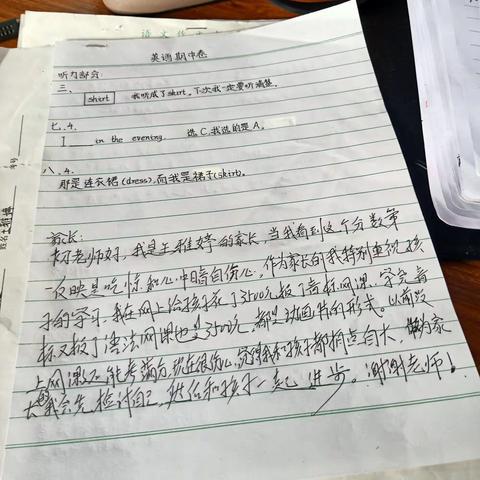 英语期中卷
听力部分：
三、
shirt 我听成了skirt，下次我一定要听清楚。
七、4.
I ___ in the evening. 选C，我选的是A。
八、4.
那是连衣裙(dress)，而我是裙子(skirt)。
家长：
老师好，我是王雅婷的家长，当我看到这个分数第
一反映是吃惊和心中暗自伤心，作为家长的我特别重视孩
子的学习，我在网上给孩子花了3500元报了音标网课，学完音
标又报了语法网课也是3500元，都是动画片的形式。以前没
上网课还能考满分，现在很伤心，觉得我和孩子都有点自大，作为家
长我会先检讨自己，然后和孩子一起进步。谢谢老师！
姓名